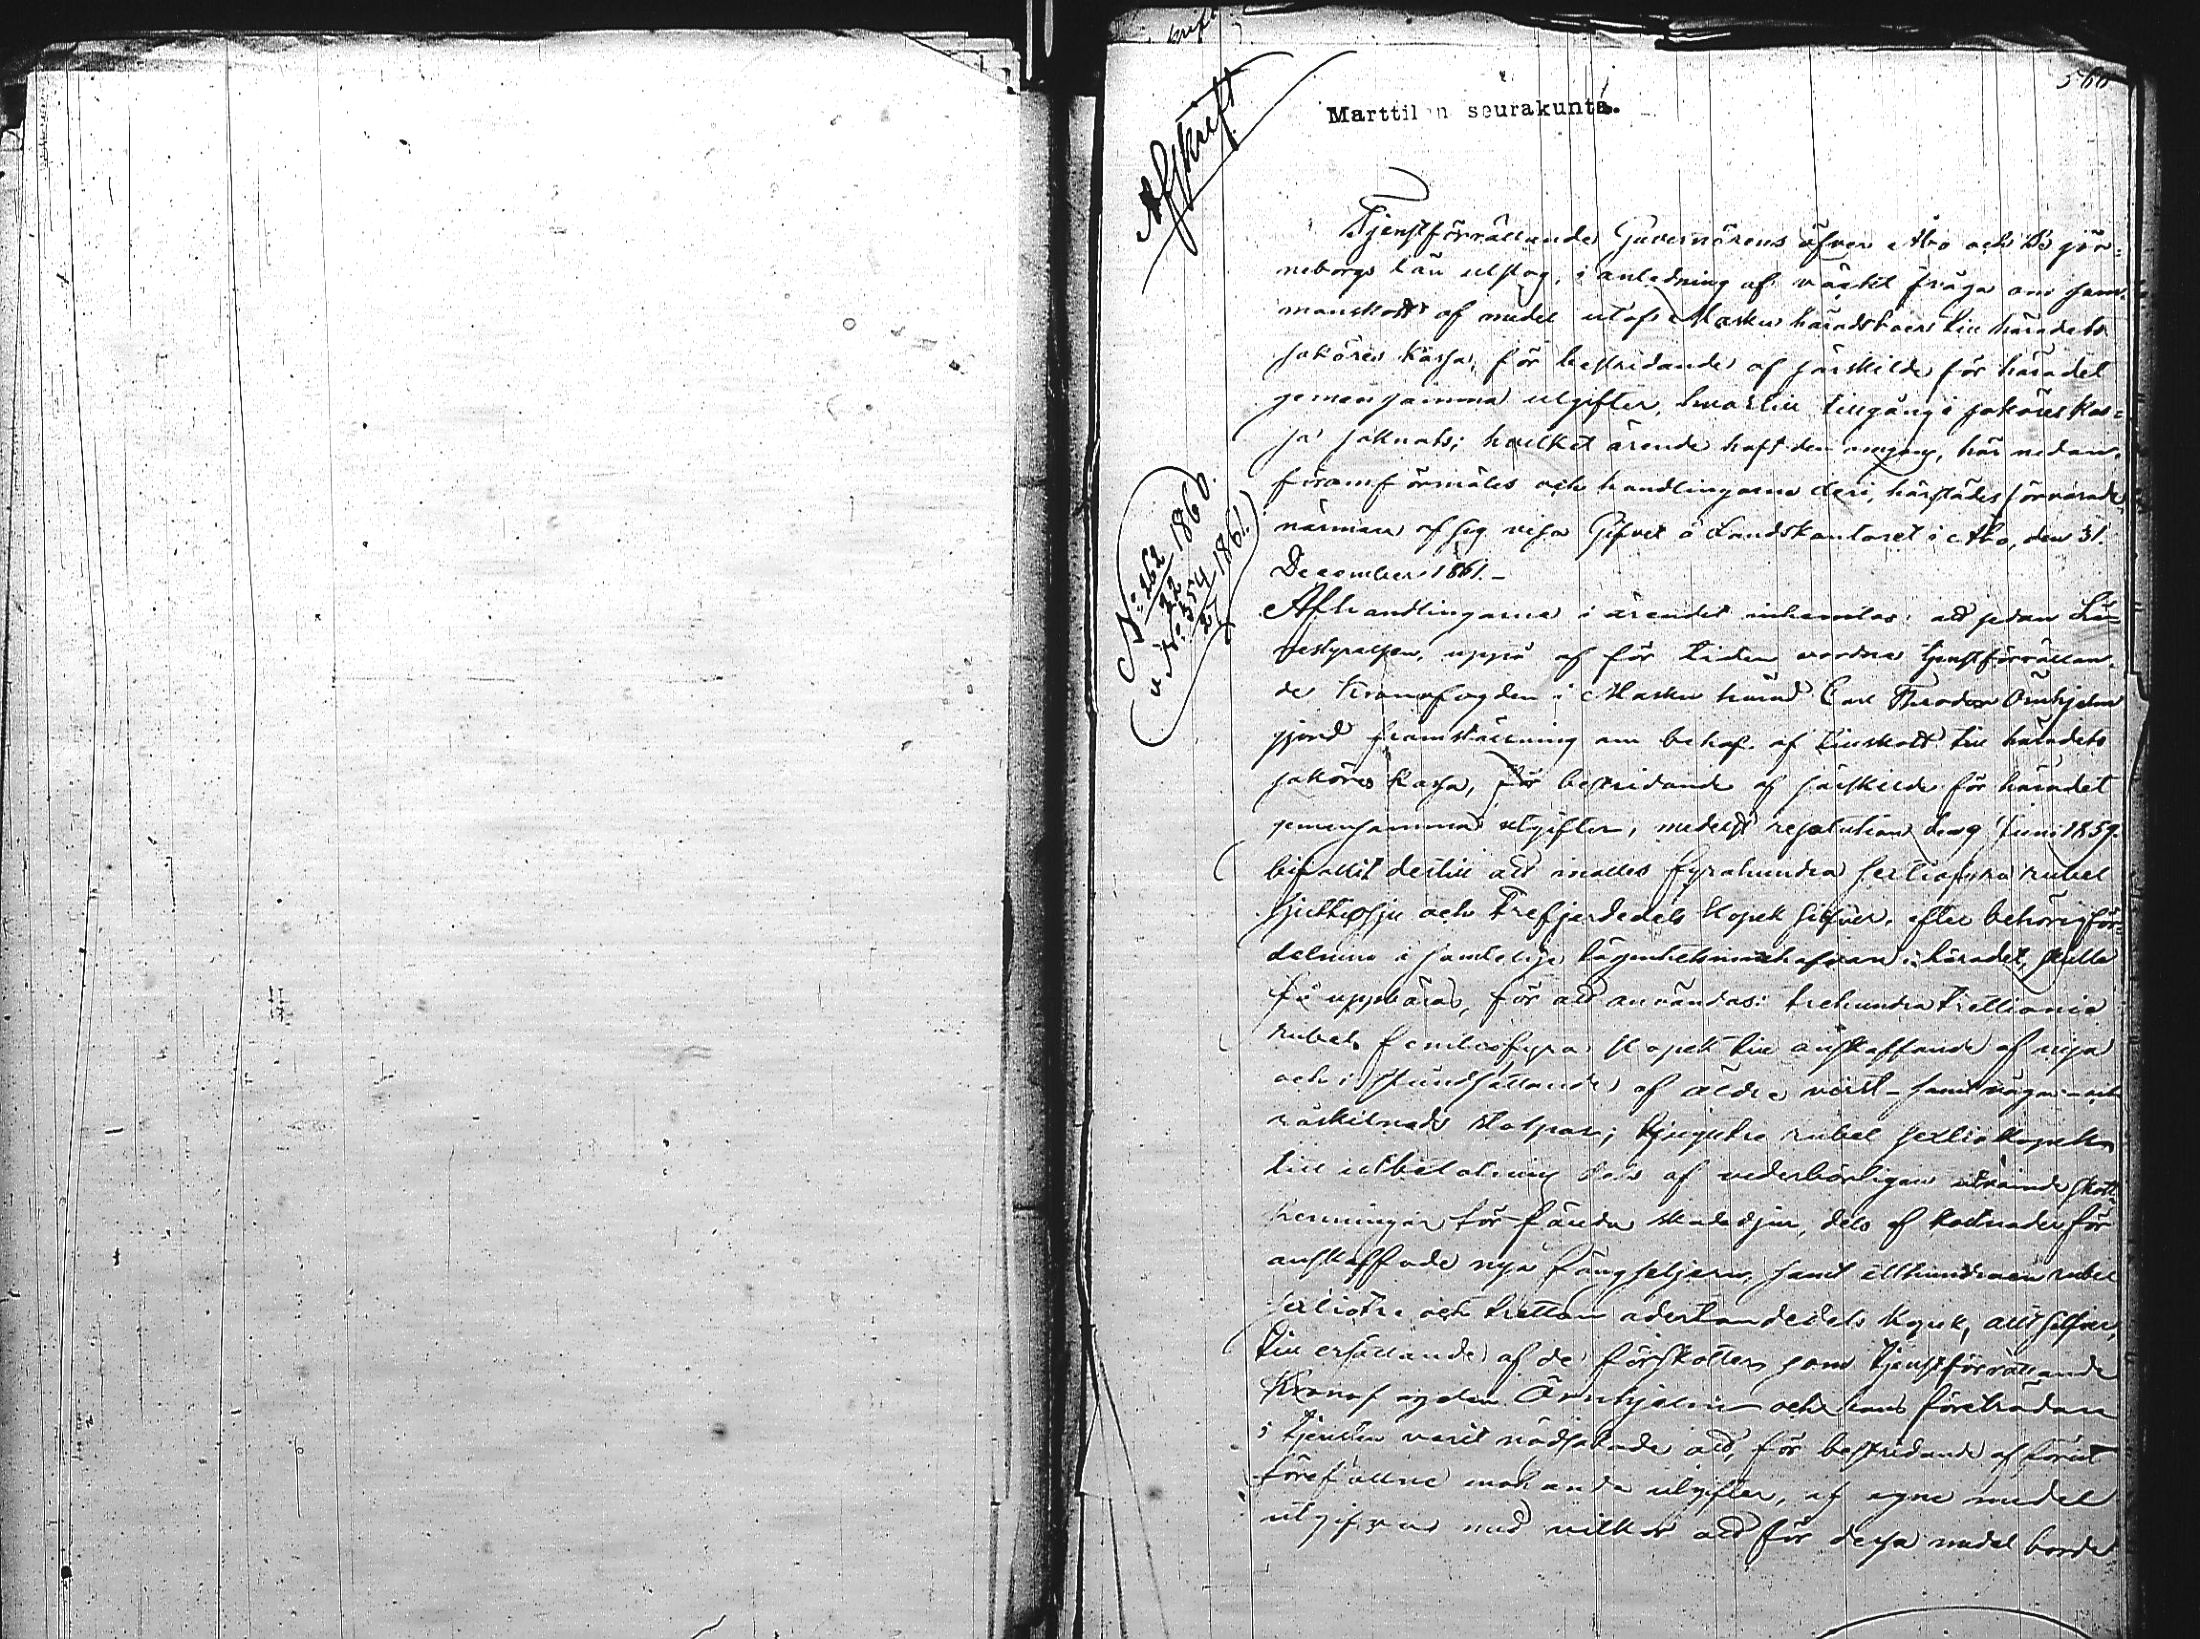 560
Marttilan seurakunta.
Afskrift
Tjenstförrättande Guvernörens öfver Åbo och Björ=
neborgs län utslag, i anledning af väckt fråga om sam-
manskott af medel utaf Masku häradsboer till häradets
saköres kassa, för bestridande af särskilde för häradet
gemensamma utgifter, hvartill tillgång i saköres kas=
sa saknats; hvilket ärende haft den omgång, här nedan-
före omförmäles och handlingarne deri, härstädes förvarade,
närmare af sig visa Gifvet å Landskontoret i Åbo, den 31.
December 1861.-
No: 262/22 1860.
v. No: 354/27 1861.
Af handlingarne i ärendet inhemtas: att sedan Lä=
nestyrelsen, uppå af för tiden vordne tjenstförrättan-
de Kronofogden i Masku härad Carl Theodor Örnhjelm
gjord framställning om behof af tillskott till häradets
saköres kassa, för bestridande af särskilde för häradet
gemensamma utgifter, medelst resolution den 9 Juni 1859.
bifallit dertill att inalles fyrahundra sextiofyra rubel
sjuttiosju och trefjerdedels kopek silfver, efter behörig för=
delning i samtelige lägenhetsinnehafvare i häradet, skulle
få uppbäras, för att användas: trehundra trettionio
rubel femtiofyra kopek till anskaffande af nya
och i ståndsättande af äldre verst- samt vägar- och
råskilnads stolpar; tjugutre rubel sextio kopek
till utbetalning dels af vederbörligen utrönde skott
penningar för fånda skadedjur, dels af kostnader för
anskaffade nya fängseljern, samt etthundraen rubel
sextiotre och tretton adertondedels kopek, allt silfver,
till ersättande af de förskotter, som tjenstförrättande
Kronofogden Örnhjelm och hans företrädare
i tjensten varit nödsakade att, för bestridande af förut
förefallne enahanda utgifter, af egne medel
utgifva med vilkor att för dessa medel borde